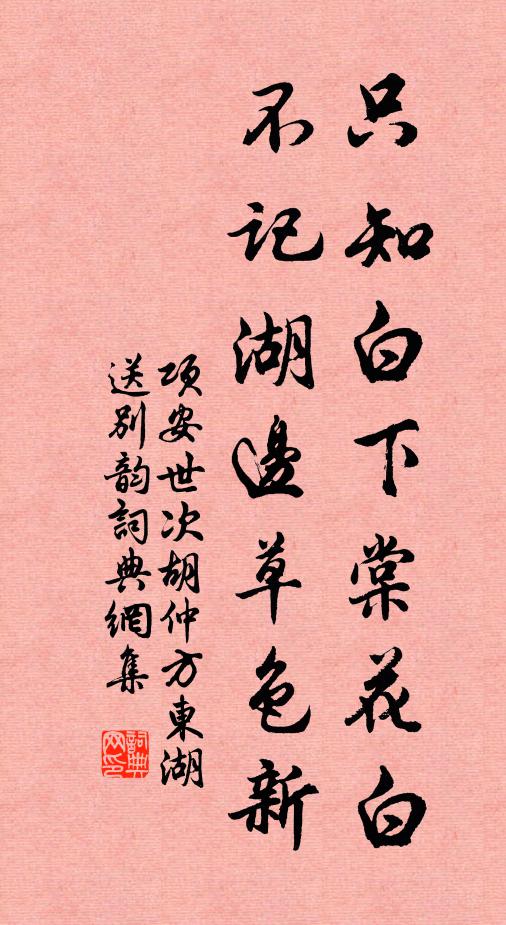 只知白下棠花白
不记湖邊草色新
项安世次胡仲方東湖
送别韵詞典網集
詞典
网印